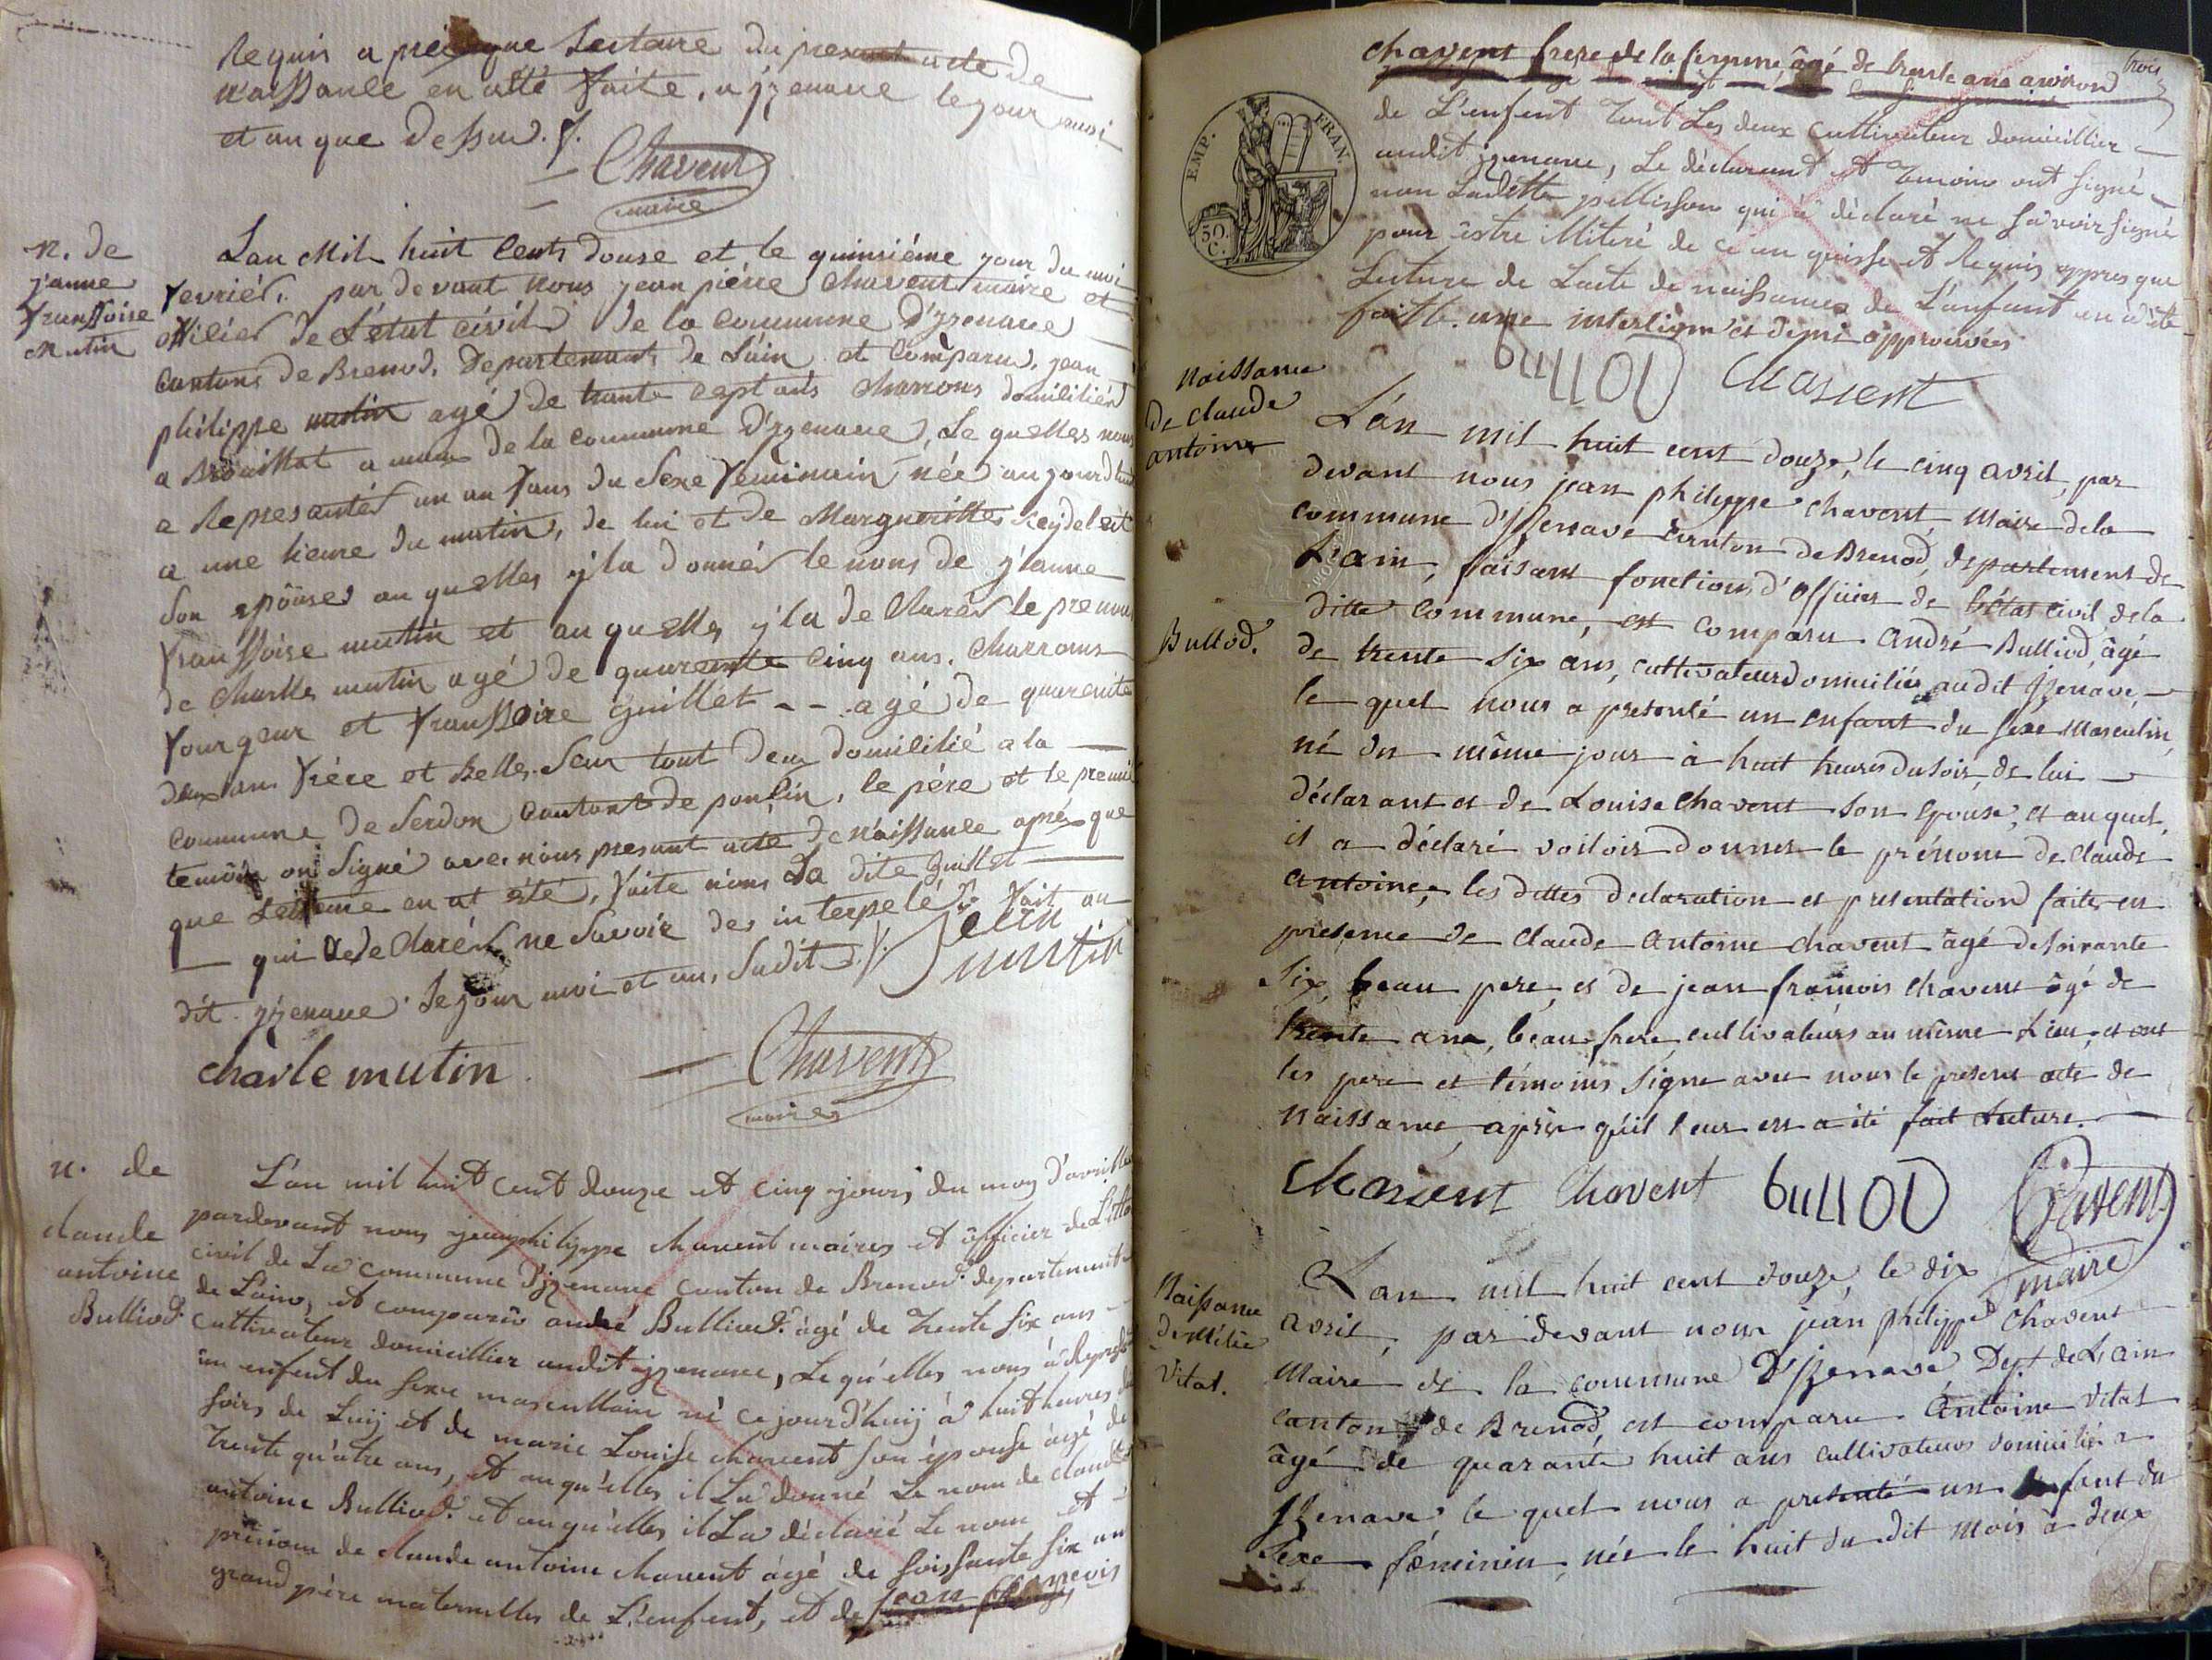 Requis a pré que Lecteure du presant acte de
n'aissance en atté faite, a yzenave le jour moi
et an que dessus./.
Chavent
maire
n. de
j'anne
franssoise
Mutin
Lan Mil huit Cents douse et le quinsiéme jour du moi
fevriér. par devant nous jean piérre Chavent maire et
officiér de L'état civil de la Commune D'yzenave
Cantons de Brenod, Departement de L'ain et Comparus, jean
philippe mutin agé de trante cept ans charrons domicilién
a Brouillat amau de la commune D'yzenave, Le quelles nous
a Represantér un an fans du Sexe feminain née aujourd'hui
a une heure du mutin, de lui et de Margueritte Reydelet
Son epouse au quelles y la donnér le nons de j'anne
franssoise mutin et au quelles y la de Clarér le prenons
de Charlles mutin agé de quarente Cinq ans. Charrons
fourgeur et franssoise guillet -- agé de quarente
deux ans frére et Belle Seur tout deux domicilié a la
Commune de Serdon Cantons de ponsin, le pére et le premié
temoin on Signé avec nous presant acte de n'aissance aprés que
que Lecteure en at été, faite n'ons La dite guillet
qui a de Clarér ne Savoir des interpelé./. fait au
dit yzenave le jour moi et an, Sudit ./.
Jean
mutin
charle mutin.
Chavent
maire
n. de
claude
antoine
Bulliod.
L'an mil huit cent douze et cinq jours du moy d'avrille
pardevant nous jeanphilippe chavent maires et officier de L'etta
civil de La commune d'yzenave canton de Brenod. departement
de L'ain, et comparû andré Bulliod. âgé de Trente six ans
cultivateur domicillier audit yzenave, Le qu'elles nous à Represt
un enfent du sexe masculllain né ce jourd'huij à huit heures du
soirs de Luij et de marie Louisse chavent son épouse âgé de
Trente qu'atre ans, et auqu'elles il La donné Le nom de claude
antoine Bulliod. et auqu'elles il La déclaré Le nom et
prénom de claude antoine chavent âgé de soissante six an
grand père maternelles de L'enfent, et de jean francois
trois
chavent frere de la femme âgé de trente ans environ
EMP. FRAN.
50. C.
de L'enfent Tout Les deux cultivateur domicillier
audit yzenave, Le déclarant et Temoins ont signé
non Ladette pellisson qui à déclaré ne savoir signé
pour estre illiteré de ce en quisse et Requis appres que
Lecture de L'acte de naissances de L'anfant en a été
faitte. une interligne et demi approuvées
bULLOD Chavent
Naissance
de claude
antoine
Bullod.
L'an mil huit cent douze, le cinq avril, par
devant nous jean philippe chavent, Maire de la
commune d'Izenave canton de Brenod, departement de
L'ain, faisant fonctions d'officier de l'état civil de la
ditte commune, est comparu André Bulliod, âgé
de trente six ans, cultivateur domicilié audit Izenave,
le quel nous a presenté un enfant du sexe Masculin,
né du même jour à huit heures du soir, de lui
déclarant et de Louise Chavent son épouse, et auquel,
il a déclaré voiloir donner le prénom de claude
antoine, les dittes declaration et presentation faites en
presence de claude Antoine chavent âgé de soixante
six, beau pere, et de jean francois chavent âgé de
trente ans, beau frere, cultivateurs au même Lieu, et ont
les pere et témoins signe avec nous le present acte de
naissance, après qu'il leur en a été fait Lecture.
Chavent Chavent bULLOD Chavent
maire
Naissance
d'Mélie
Vital.
L'an mil huit cent douze, le dix
avril, par devant nous jean philippe Chavent
Maire de la commune D'Izenave, Dept. de L'ain
canton de Brenod, est comparu Antoine Vital
âgé de quarante huit ans cultivateur domicilié a
Izenave le quel nous a presenté un enfant du
Sexe féminin, née le huit du dit mois à deux